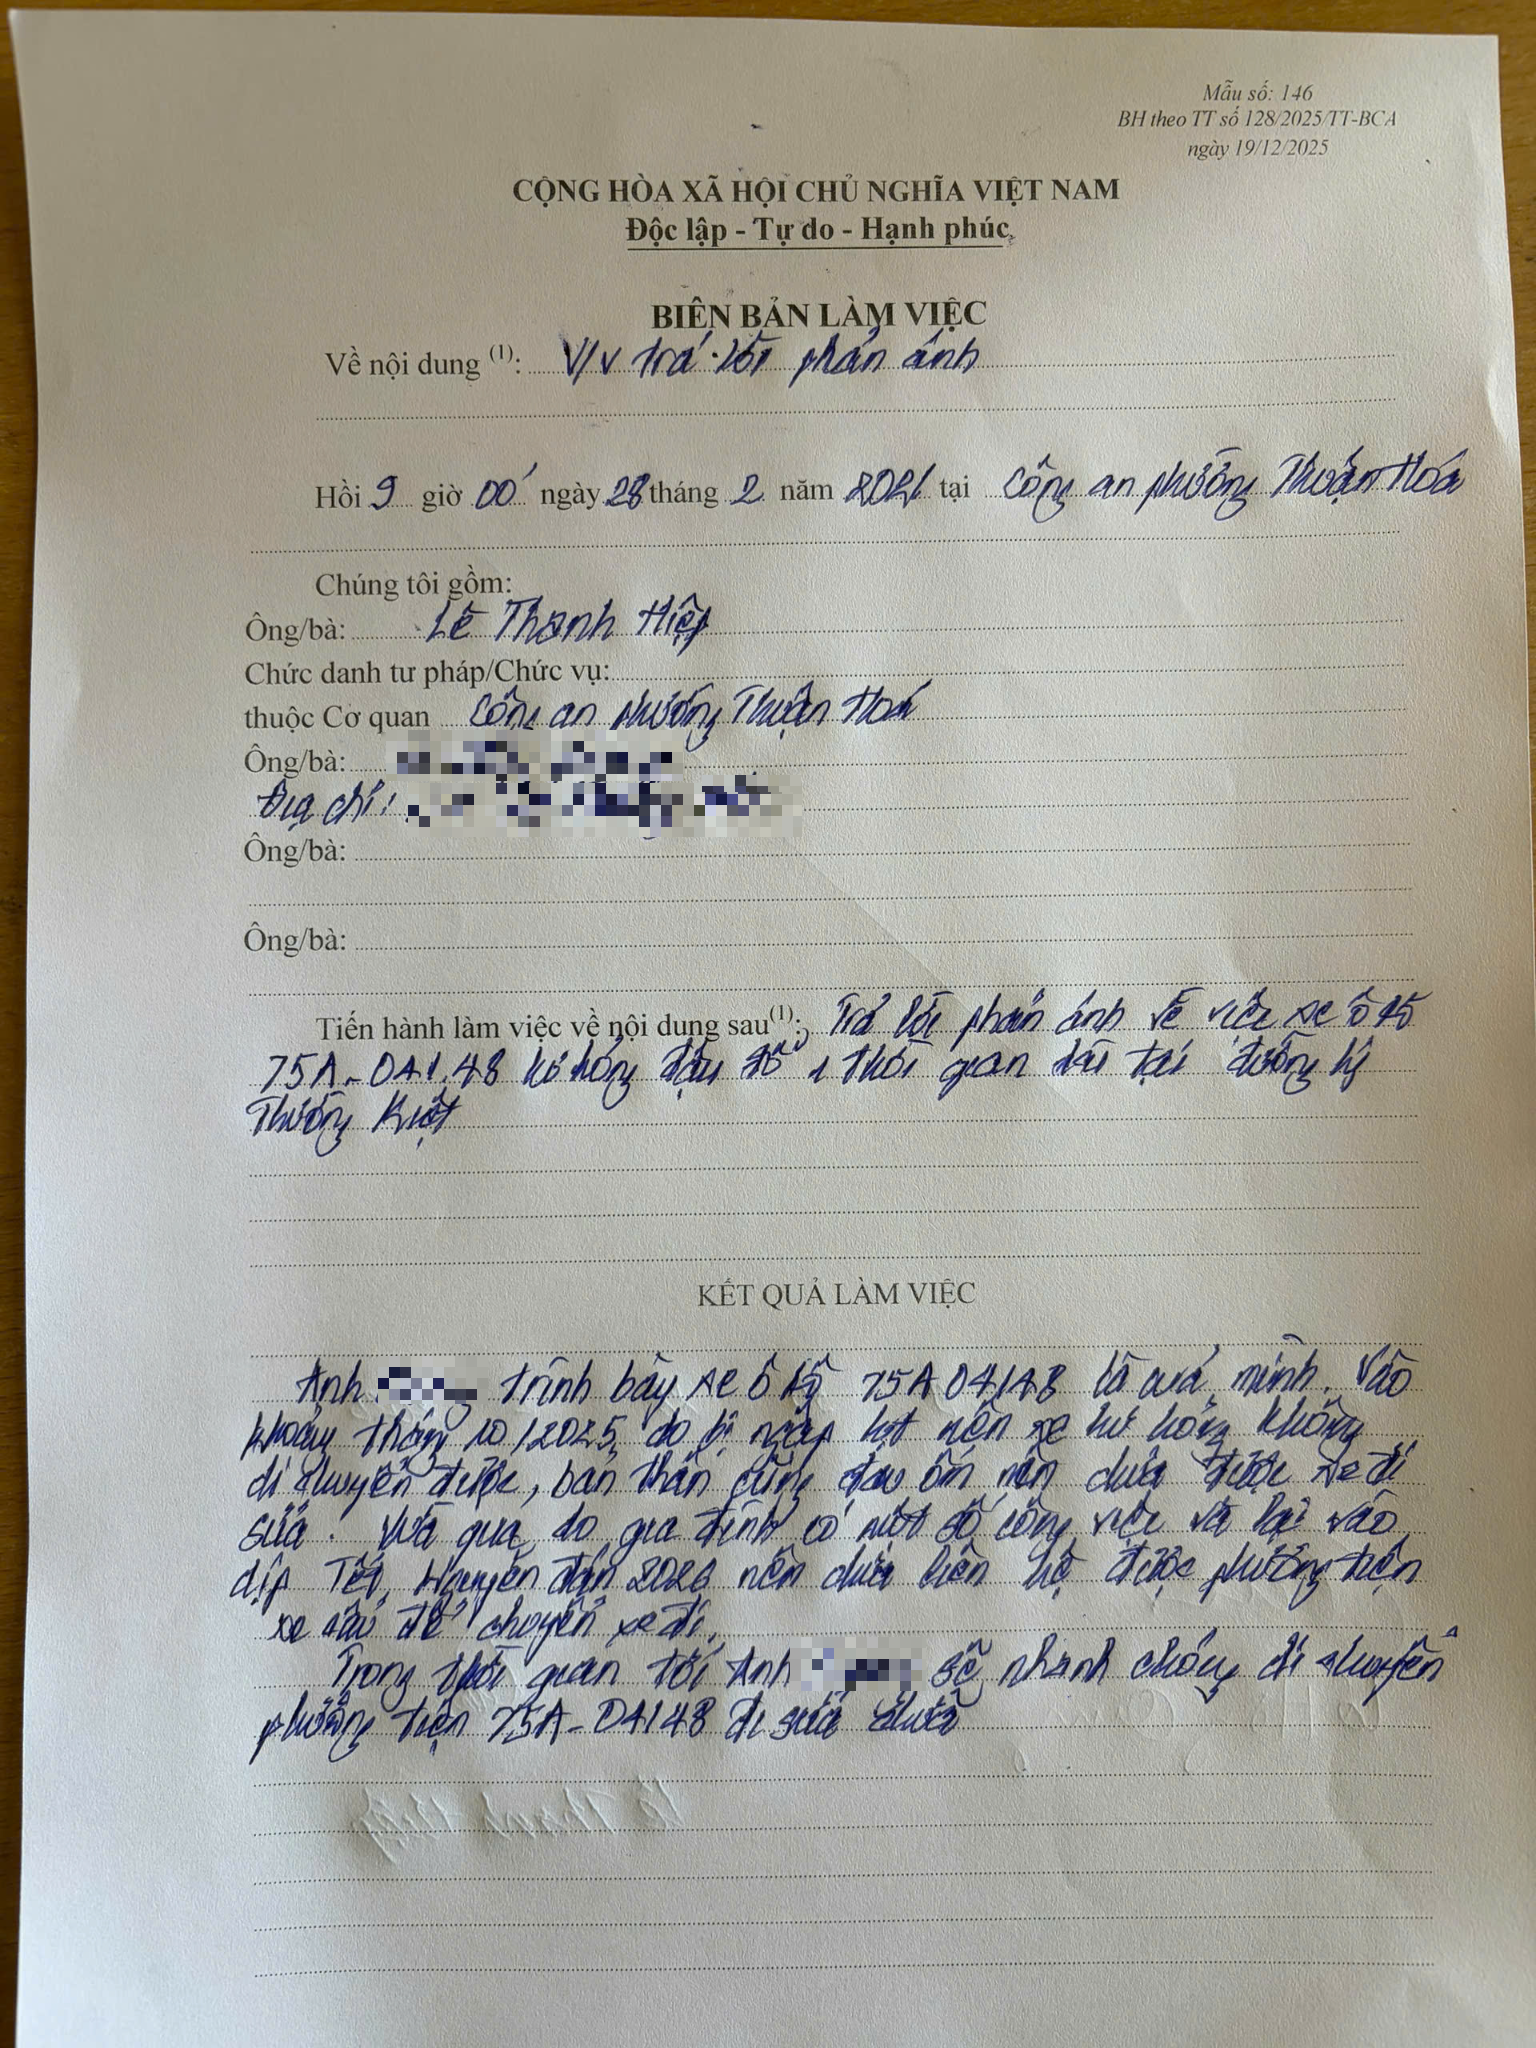 Mẫu số: 146
BH theo TT số 128/2025/TT-BCA
ngày 19/12/2025
CỘNG HÒA XÃ HỘI CHỦ NGHĨA VIỆT NAM
Độc lập - Tự do - Hạnh phúc
BIÊN BẢN LÀM VIỆC
Về nội dung (1): V/v trả lời phản ánh
Hồi 9 giờ 00 ngày 28 tháng 2 năm tại Công an phường Thuận Hoá
Chúng tôi gồm:
Ông/bà: Lê Thanh Hiệp
Chức danh tư pháp/Chức vụ:
thuộc Cơ quan Công an phường Thuận Hoá
Ông/bà:
Địa chỉ:
Ông/bà:
Ông/bà:
Tiến hành làm việc về nội dung sau(1): Trả lời phản ánh về việc xe ô tô
75A-041.48 hư hỏng đậu đỗ 1 thời gian dài tại đường Lý
Thường Kiệt
KẾT QUẢ LÀM VIỆC
Anh trình bày xe ô tô 75A 04148 là của mình. Vào
khoảng tháng 10/2025, do bị ngập lụt nên xe hư hỏng không
di chuyển được, bản thân cũng đau ốm nên chưa được xe đi
sửa. Vừa qua do gia đình có một số công việc và lại vào
dịp Tết Nguyên đán 2026 nên chưa liên hệ được phương tiện
xe cẩu để chuyển xe đi.
Trong thời gian tới Anh sẽ nhanh chóng di chuyển
phương tiện 75A-04148 đi sửa chữa
Lê Thanh Hiệp